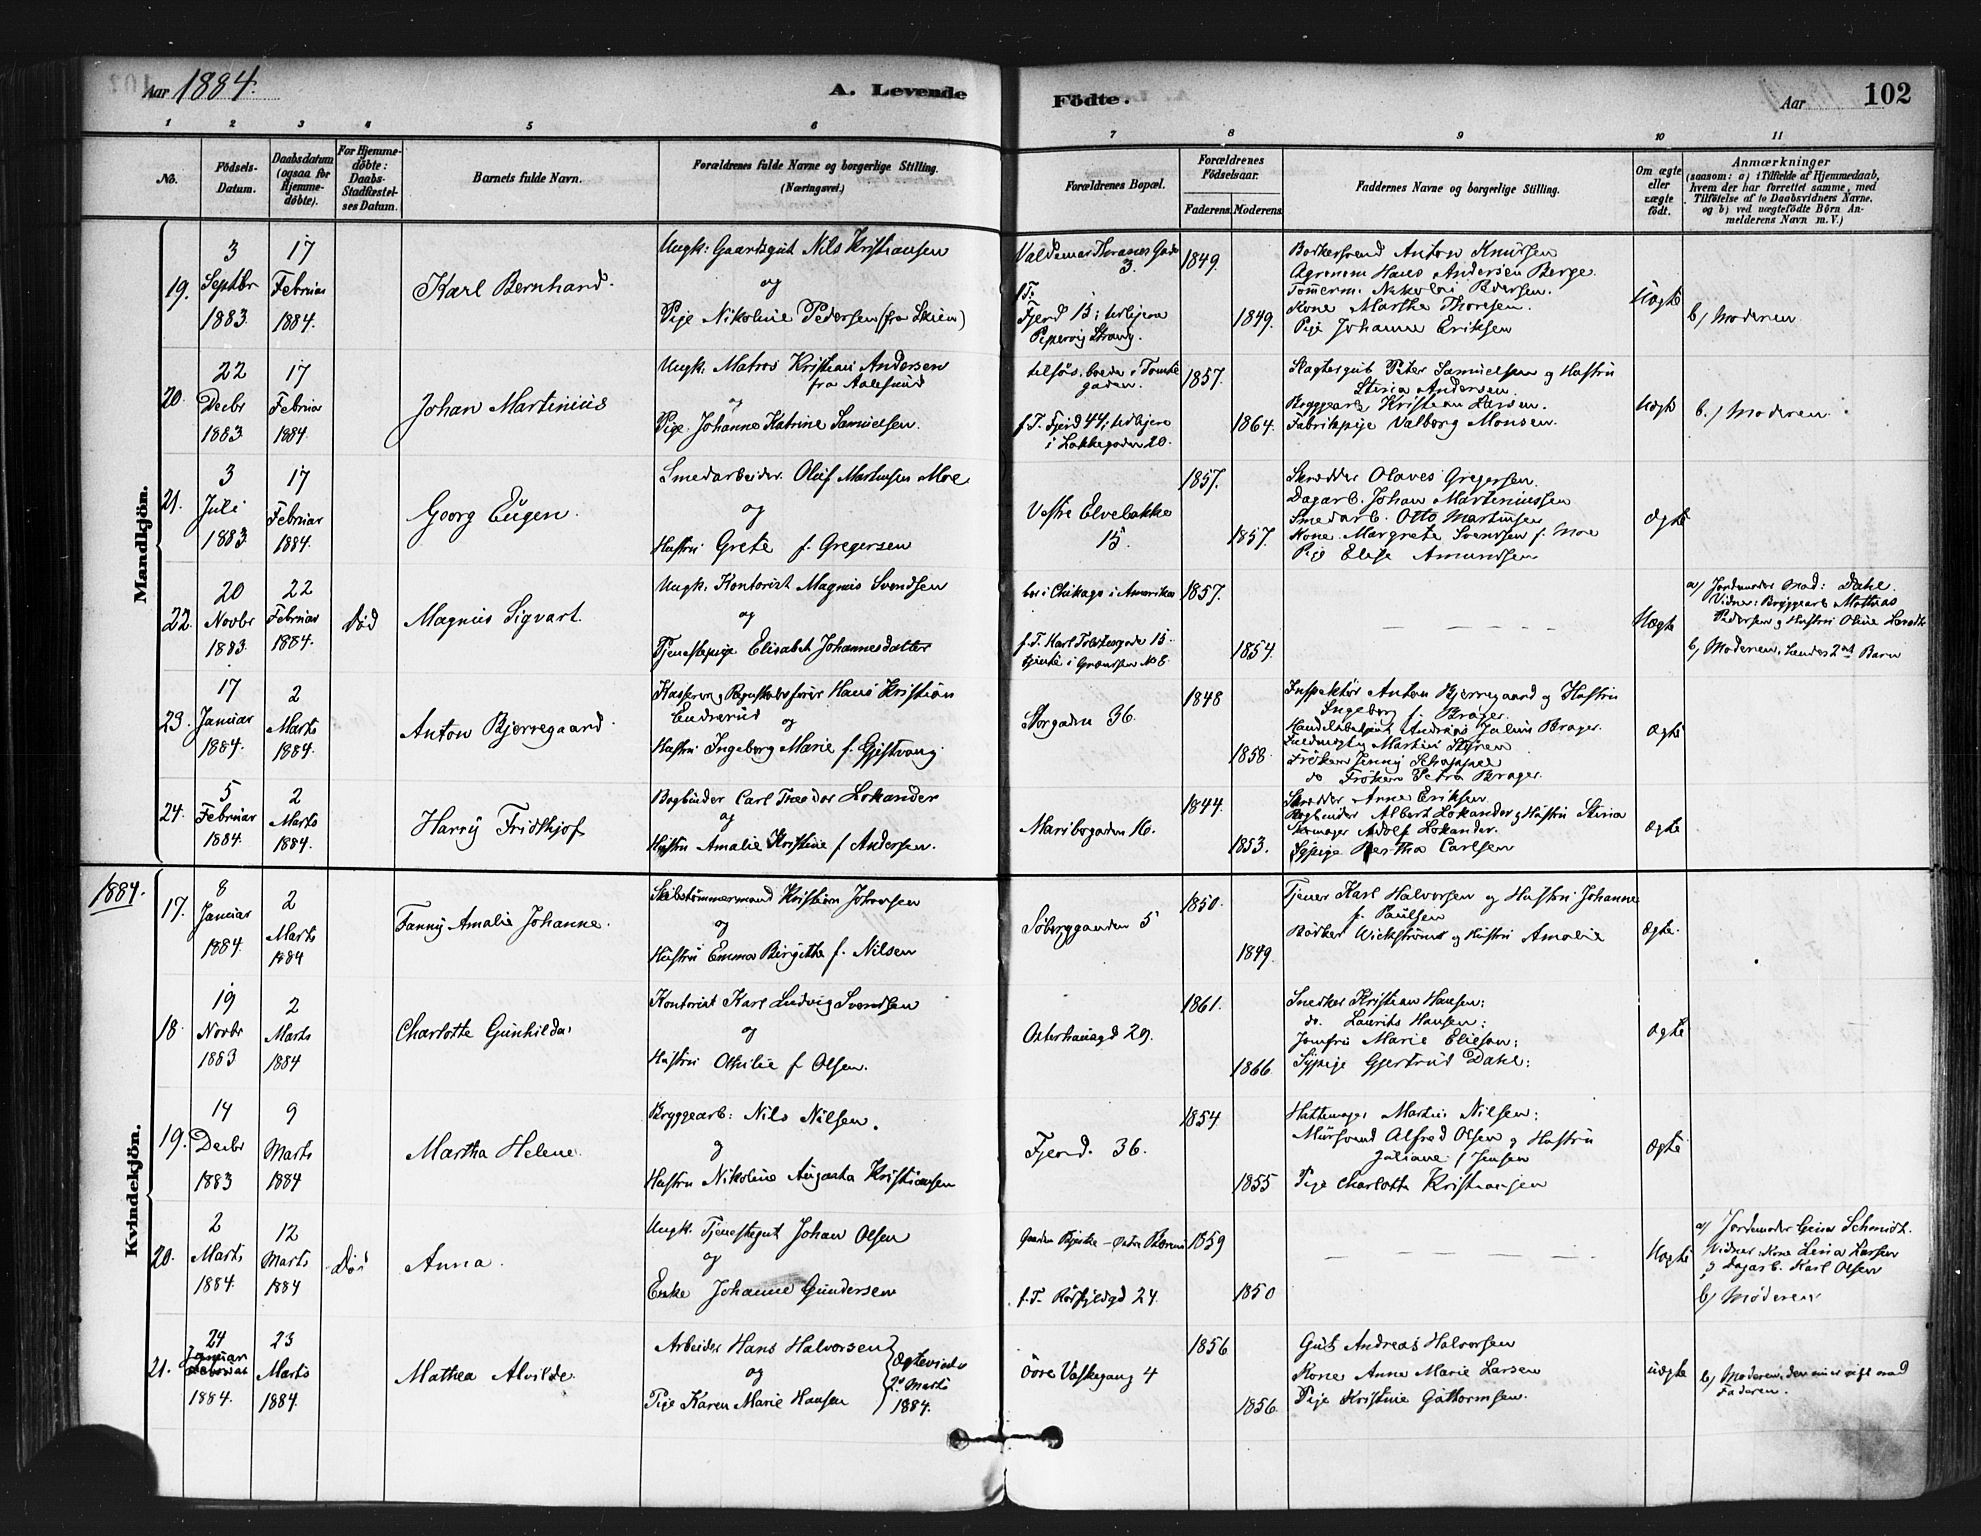 Aar 1884.
A. Levende
Födte.
Aar
102
1 2 3 4 5 6 7 8 9 10 11
No.
Födsels-
Datum.
Daabsdatum
(ogsaa for
Hjemme-
döbte).
For Hjemme-
döbte:
Daabs-
Stadfæstel-
ses Datum.
Barnets fulde Navn.
Forældrenes fulde Navne og borgerlige Stilling.
(Næringsvei.)
Forældrenes Bopæl.
Forældrenes
Födselsaar.
Faderens. Moderens.
Faddernes Navne og borgerlige Stilling.
Om ægte
eller
uægte
födt.
Anmærkninger
(saasom: a) i Tilfælde af Hjemmedaab,
hvem der har forrettet samme, med
Tilföielse af to Daabsvidners Navne,
og b) ved uægtefödte Börn An-
melderens Navn m. V.)
Mandkjön.
19.
3
Septbr
1883.
17
Februar
1884.
Karl Bernhard.
Ungk: Gaardsgut Nils Kristiansen
og
Pige Nikoline Pedersen (fra Skien)
Valdemar Thranes Gade
3.
f.T.
Pipervig Strang.
1849.
1849.
Bødkersvend Anton Knudsen
Agronom Hans Andersen Berge.
Tømmerm. Nikolai Pedersen.
Kone Marthe Thoresen.
Pige Johanne Eriksen
Uægte
b/ Moderen.
20.
22
Decbr
1883.
17
Februar
1884.
Johan Martinius
Ungk. Matros Kristian Andersen
fra Aalesund
og
Pige Johanne Katrine Samuelsen.
tilsøs, boede i Tomte
gaden.
f.T. Fjerd 44; udtjera
i Lakkegaden 20.
1857.
1864.
Slagtergut Peter Samuelsen og Hustru
Stina Andersen
Bryggearb. Kristian Larsen.
Fabrikpige Valborg Monsen.
Uægte
b./ Moderen.
21.
3
Juli
1883
17
Februar
1884.
Georg Eugen.
Smedarbeider Oluf Martinsen Moe
og
Hustru Grete f. Gregersen
Vestre Elvebakke
15.
1857.
1857.
Skrædder Olaves Gregersen.
Dagarb. Johan Martiniussen
Smedarb. Otto Martinsen
Kone Margrete Svendsen f. Moe
Pige Elise Amundsen
Ægte
22.
20
Novbr
1883.
22
Februar
1884.
Død
Magnus Sigvart.
Ungk. Kontorist Magnus Svendsen
og
Tjenestepige Elisabet Johannesdatter
bor i Chikago i Amerika
f.T. Karl Tolstesgade 15.
tjente i Grændsen No 8.
1857.
1854.
Uægte
a/ Jordmoder Mad: Dahl.
Vidner: Bryggearb. Mathias
Pedersen og Hustru Oline
b/ Moderen, hendes 2det Barn
23.
17
Januar
1884.
2
Marts
1884.
Anton Bjerregaard.
Kasserer og Regnskabsfører Hans Kristian
Endrerud
og
Hustru Ingeborg Marie f. Gjistvang.
Storgaden 36.
1848
1858.
Inspektør Anton Bjerregaard og Hustru
Ingeborg f. Brager.
Handelsbetjent Andreas Julius Brager.
Fuldmægtig Martin Styren
Frøken Jenny Schappel
do Frøken Petra Brager.
Ægte
24.
5
Februar
1884.
2
Marts
1884.
Harry Fridthjof
Bogbinder Carl Theodor Lokander
og
Hustru Amalie Kristine f Andersen.
Maribogaden 16.
1844.
1853.
Skrædder Arne Eriksen
Bogbinder Albert Lokander og Hustru Stina
Skomager Adolf Lokander.
Sypige Bertha Carlsen
Ægte
1884.
Kvindekjön.
17.
8
Januar
1884.
2
Marts
1884
Fanny Amalie Johanne.
Skibstømmermand Kristian Johnsen
og
Hustru Emma Birgitte f. Nilsen
Søbergganden 5
1850.
1849.
Tjener Karl Halvorsen og Hustru Johanne
f. Paulsen
Bødker Wickstrøm og Hustru Amalie
Ægte.
18.
19
Novbr
1883
2
Marts
1884
Charlotte Gunhilda.
Kontorist Karl Ludvig Svendsen
og
Hustru Othilie f Olsen.
Osterhausgd 29.
1861.
1866
Snedker Kristian Hansen;
do. Laurits Hansen;
Jomfru Marie Eliesen;
Sypige Gjertrud Dahl;
Ægte
19.
14
Decbr
1883
9
Marts
1884
Martha Helene.
Bryggearb: Nils Nilsen.
og
Hustru Nikoline Augusta Kristiansen
Fjerd. 36.
1854
1855
Hattemager Martin Nilsen;
Mursvend Alfred Olsen og Hustru
Juliane f Jensen
Pige Charlotte Kristiansen
Ægte
20.
2
Marts
1884.
12
Marts
1884
Død
Anna.
Ungk. Tjenestegut Johan Olsen
og
Enke Johanne Gundersen
f.T. Rødfyldgd 24.
1859
1850
Uægte
a/ Jordmoder Gina Schmidt.
Vidner: Kone Lina Larsen
og Dagarb. Karl Olsen
b/ Moderen
21.
24
Januar
Februar
1884.
23
Marts
1884.
Mathea Alvilde.
Arbeider Hans Halvorsen
og
Pige Karen Marie Hansen
Ægteviede
2den Marts
1884.
Øvre Vaskegang 4
1856
1856.
Gut Andreas Halvorsen
Kone Anne Marie Larsen
Pige Kristine Guthormsen.
uægte
b/ Moderen, den nu er gift med
Faderen.